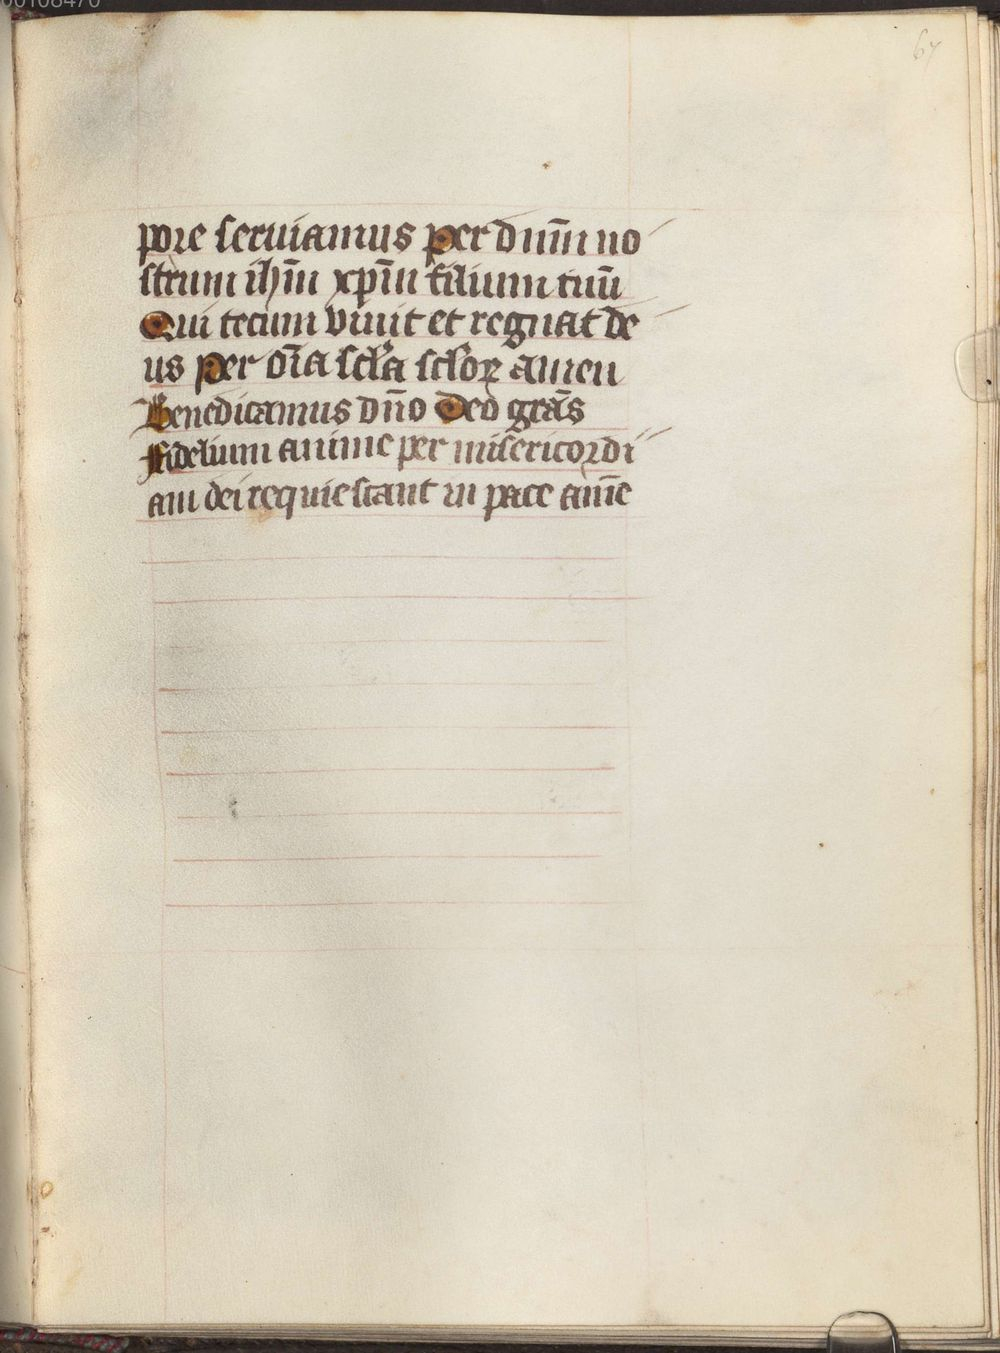 67
pore seruiamus per dnm̄ no
strum ih̄m xp̄m filium tuū
Qui tecum viuit et regnat de
us per oīa scl̄a scl̄oꝝ amen
Benedicamus dn̄o Deo grās
Fidelium anime per misericordi
am dei requiescant in pace amē